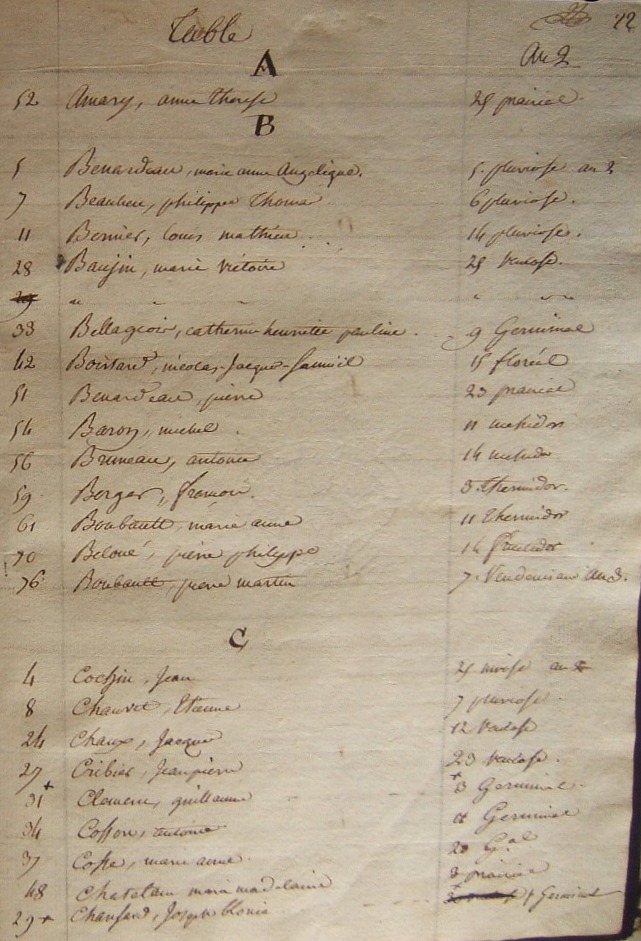 12
Table
An 2
A
52 Amary, anne therese 25 prairial
B
5 Benardeau, marie anne Angelique. 5. pluviose an 2
7 Beaulieu, philippe Thomas 6 pluviose.
11 Bernier, Louis mathieu 14 pluviose.
28 marie victoire 25 ventose.
29 " " " " "
33 catherine henriette pauline. 9 Germinal
42 Boistard, nicolas-Jacque-Samuël 15 floréal
51 Benardeau, pierre 23 prairial
54 Baron, michel. 11 messidor
56 Bruneau, antoine 14 messidor
59. Berger, 3. Thermidor.
61 Boubault, marie anne 11 Thermidor
70 Beloué, pierre philippe 14 fructidor
76. Boubault, pierre martin 7. Vendemiaire an 3.
C
4 Cochin, Jean 25 nivose an 2
8 Chauvet, Etienne 7 pluviose
24 Chaux, Jacque 12 Ventose
27 Cribier, Jean pierre 23 ventose.
31 + Clemenc, guillaume + 3 Germinal.
34 Cosson, antoine Germinal
37 Coste, marie anne. 20 G.al
48 Chatelain marie madelaine 3 prairial
29 + Joseph Louis + Germinal